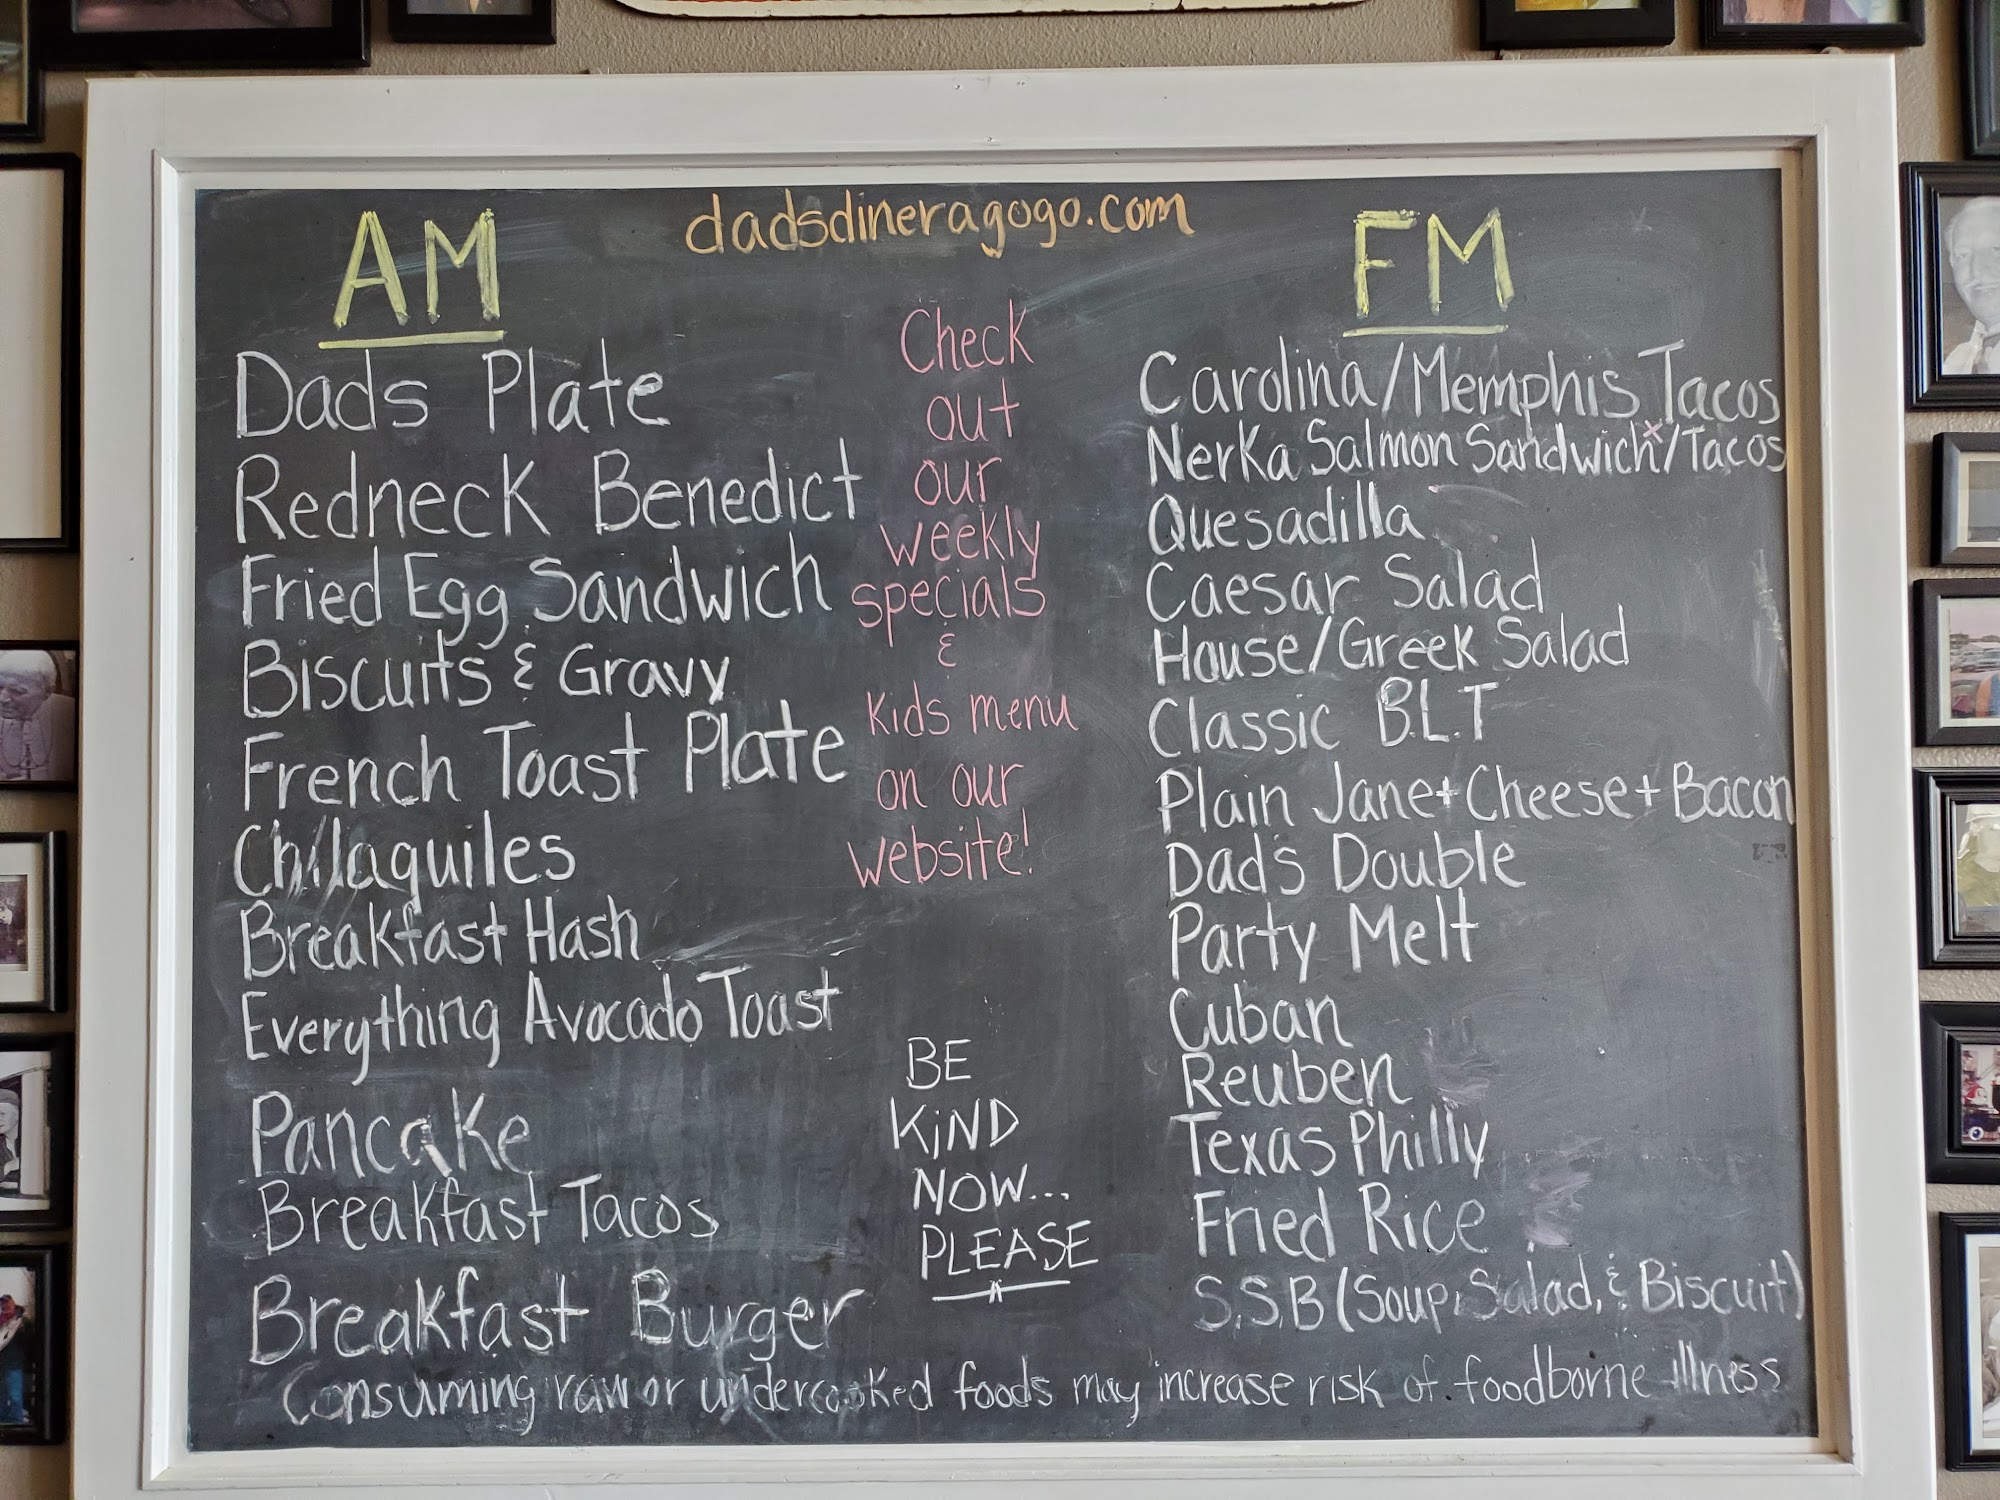 dadsdineragogo.com
AM
Dads Plate
Redneck Benedict
Fried Egg Sandwich
Biscuits & Gravy
French Toast Plate
Chilaquiles
Breakfast Hash
Everything Avocado Toast
Pancake
Breakfast Tacos
Breakfast Burger
Check
out
our
weekly
specials
&
Kids menu
on our
website!
BE
KiND
NOW...
PLEASE
FM
Carolina/Memphis Tacos
Nerka Salmon Sandwich*/Tacos
Quesadilla
Caesar Salad
House/Greek Salad
Classic B.L.T
Plain Jane+Cheese+Bacon
Dad's Double
Party Melt
Cuban
Reuben
Texas Philly
Fried Rice
S.S.B (Soup, Salad, & Biscuit)
Consuming raw or undercooked foods may increase risk of foodborne illness